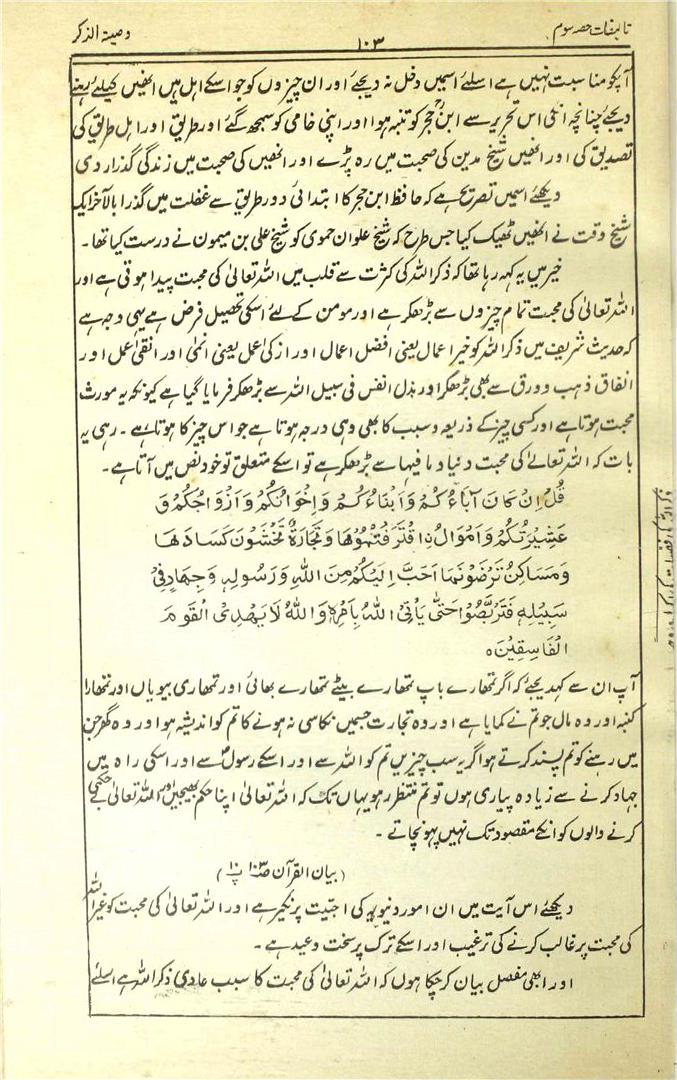 تالیفات حصہ سوم
۱۰۳
وصیۃ الذکر
آپکو مناسبت نہیں ہے اسلئے اسمیں دخل نہ دیجئے اور ان چیزوں کو جو اسکے اہل ہیں انھیں کیلئے رہنے
دیجئے چنانچہ انکی اس تحریر سے ابن حجر کو تنبہ ہوا اور اپنی خامی کو سمجھ گئے اور طریق اور اہل طریق کی
تصدیق کی اور انھیں شیخ مدین کی صحبت میں رہ پڑے اور انھیں کی صحبت میں زندگی گذار دی
دیکھئے اسمیں تصریح ہے کہ حافظ ابن حجر کا ابتدائی دور طریق سے غفلت میں گذرا بالآخر ایک
شیخ وقت نے انھیں ٹھیک کیا جس طرح کہ شیخ علوان حموی کو شیخ علی بن میمون نے درست کیا تھا۔
خیر میں یہ کہہ رہا تھا کہ ذکر اللہ کی کثرت سے قلب میں اللہ تعالیٰ کی محبت پیدا ہوتی ہے اور
اللہ تعالیٰ کی محبت تمام چیزوں سے بڑھکر ہے اور مومن کے لئے اسکی تحصیل فرض ہے یہی وجہ ہے
کہ حدیث شریف میں ذکر اللہ کو خیر اعمال یعنی افضل اعمال اور ازکی عمل یعنی انمیٰ اور انقیٰ عمل اور
انفاق ذہب و ورق سے بھی بڑھکر اور بذل نفس فی سبیل اللہ سے بڑھکر فرمایا گیا ہے کیونکہ یہ مورث
محبت ہوتا ہے اور کسی چیز کے ذریعہ و سبب کا بھی وہی درجہ ہوتا ہے جو اس چیز کا ہوتا ہے۔ رہی یہ
بات کہ اللہ تعالےٰ کی محبت دنیا و ما فیہا سے بڑھکر ہے تو اسکے متعلق تو خود نص میں آتا ہے۔
قُلْ اِنْ كَانَ آبَاءُ كُمْ وَاَبْنَاءُكُمْ وَاِخْوَانُكُمْ وَاَزْوَاجُكُمْ وَ
عَشِيْرَتُكُمْ وَاَمْوَالُ نِ اقْتَرَفْتُمُوْهَا وَتِجَارَةٌ تَخْشَوْنَ كَسَادَهَا
وَمَسَاكِنُ تَرْضَوْنَهَا اَحَبَّ اِلَيْكُمْ مِنَ اللهِ وَرَسُوْلِهٖ وَجِهَادٍ فِيْ
سَبِيْلِهٖ فَتَرَبَّصُوْا حَتّٰى يَأْتِىَ اللهُ بِاَمْرِهٖ وَاللهُ لَا يَهْدِى الْقَوْمَ
الْفَاسِقِيْنَ ہ
آپ ان سے کہدیجئے کہ اگر تمھارے باپ تمھارے بیٹے تمھارے بھائی اور تمھاری بیویاں اور تمھارا
کنبہ اور وہ مال جو تم نے کمایا ہے اور وہ تجارت جسمیں نکاسی نہ ہونے کا تم کو اندیشہ ہو اور وہ گھر جن
میں رہنے کو تم پسند کرتے ہو اگر یہ سب چیزیں تم کو اللہ سے اور اسکے رسولؐ سے اور اسکی راہ میں
جہاد کرنے سے زیادہ پیاری ہوں تو تم منتظر رہو یہاں تک کہ اللہ تعالیٰ اپنا حکم بھیجدیں اور اللہ تعالیٰ بے حکمی
کرنے والوں کو انکے مقصود تک نہیں پہونچاتے۔
(بیان القرآن صـ۱۰۳ پ۱۰)
دیکھئے اس آیت میں ان امور دنیویہ کی احبیّت پر نکیر ہے اور اللہ تعالیٰ کی محبت کو غیر اللہ
کی محبت پر غالب کرنے کی ترغیب اور اسکے ترک پر سخت وعید ہے۔
اور ابھی مفصل بیان کر چکا ہوں کہ اللہ تعالیٰ کی محبت کا سبب عادی ذکر اللہ ہے اسلئے